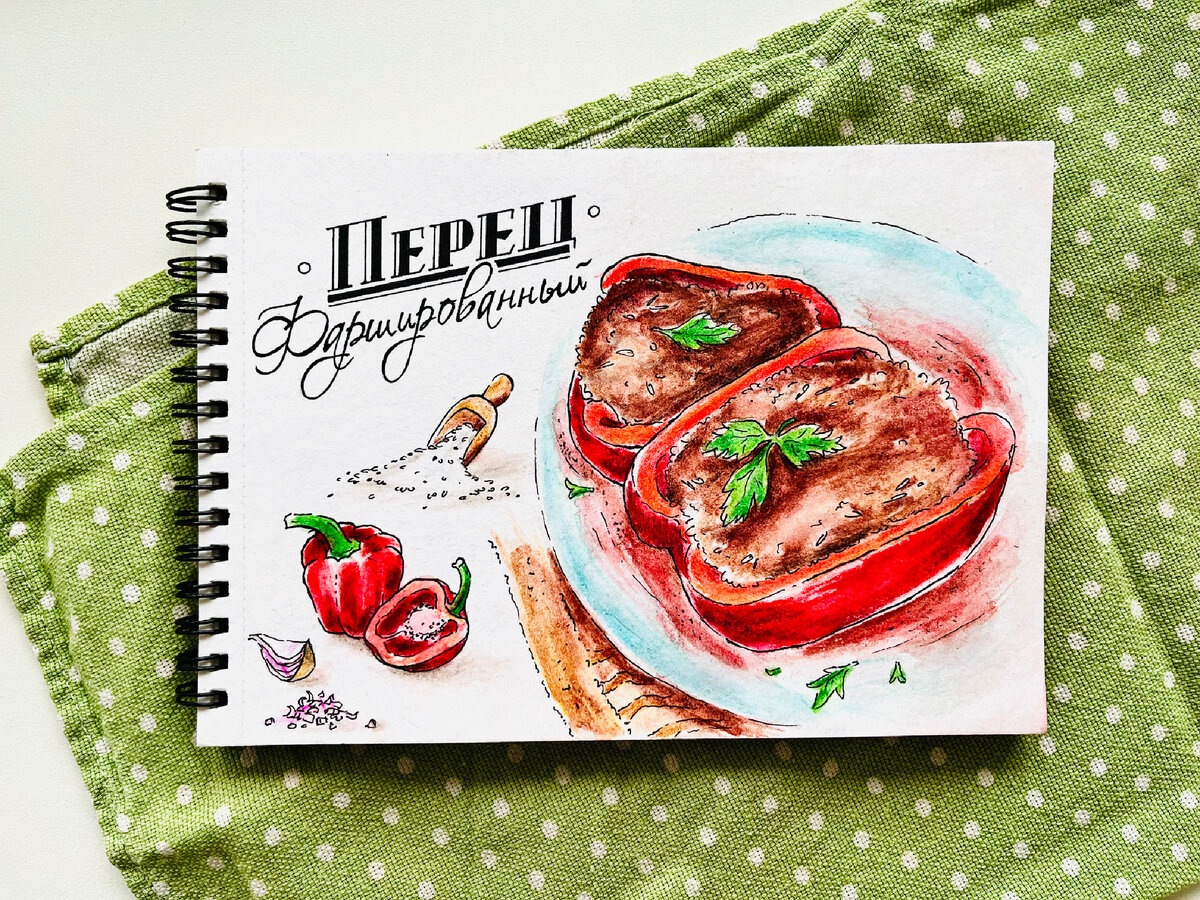 Перец
Фаршированный